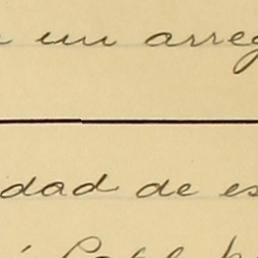 un arreg
dad de es